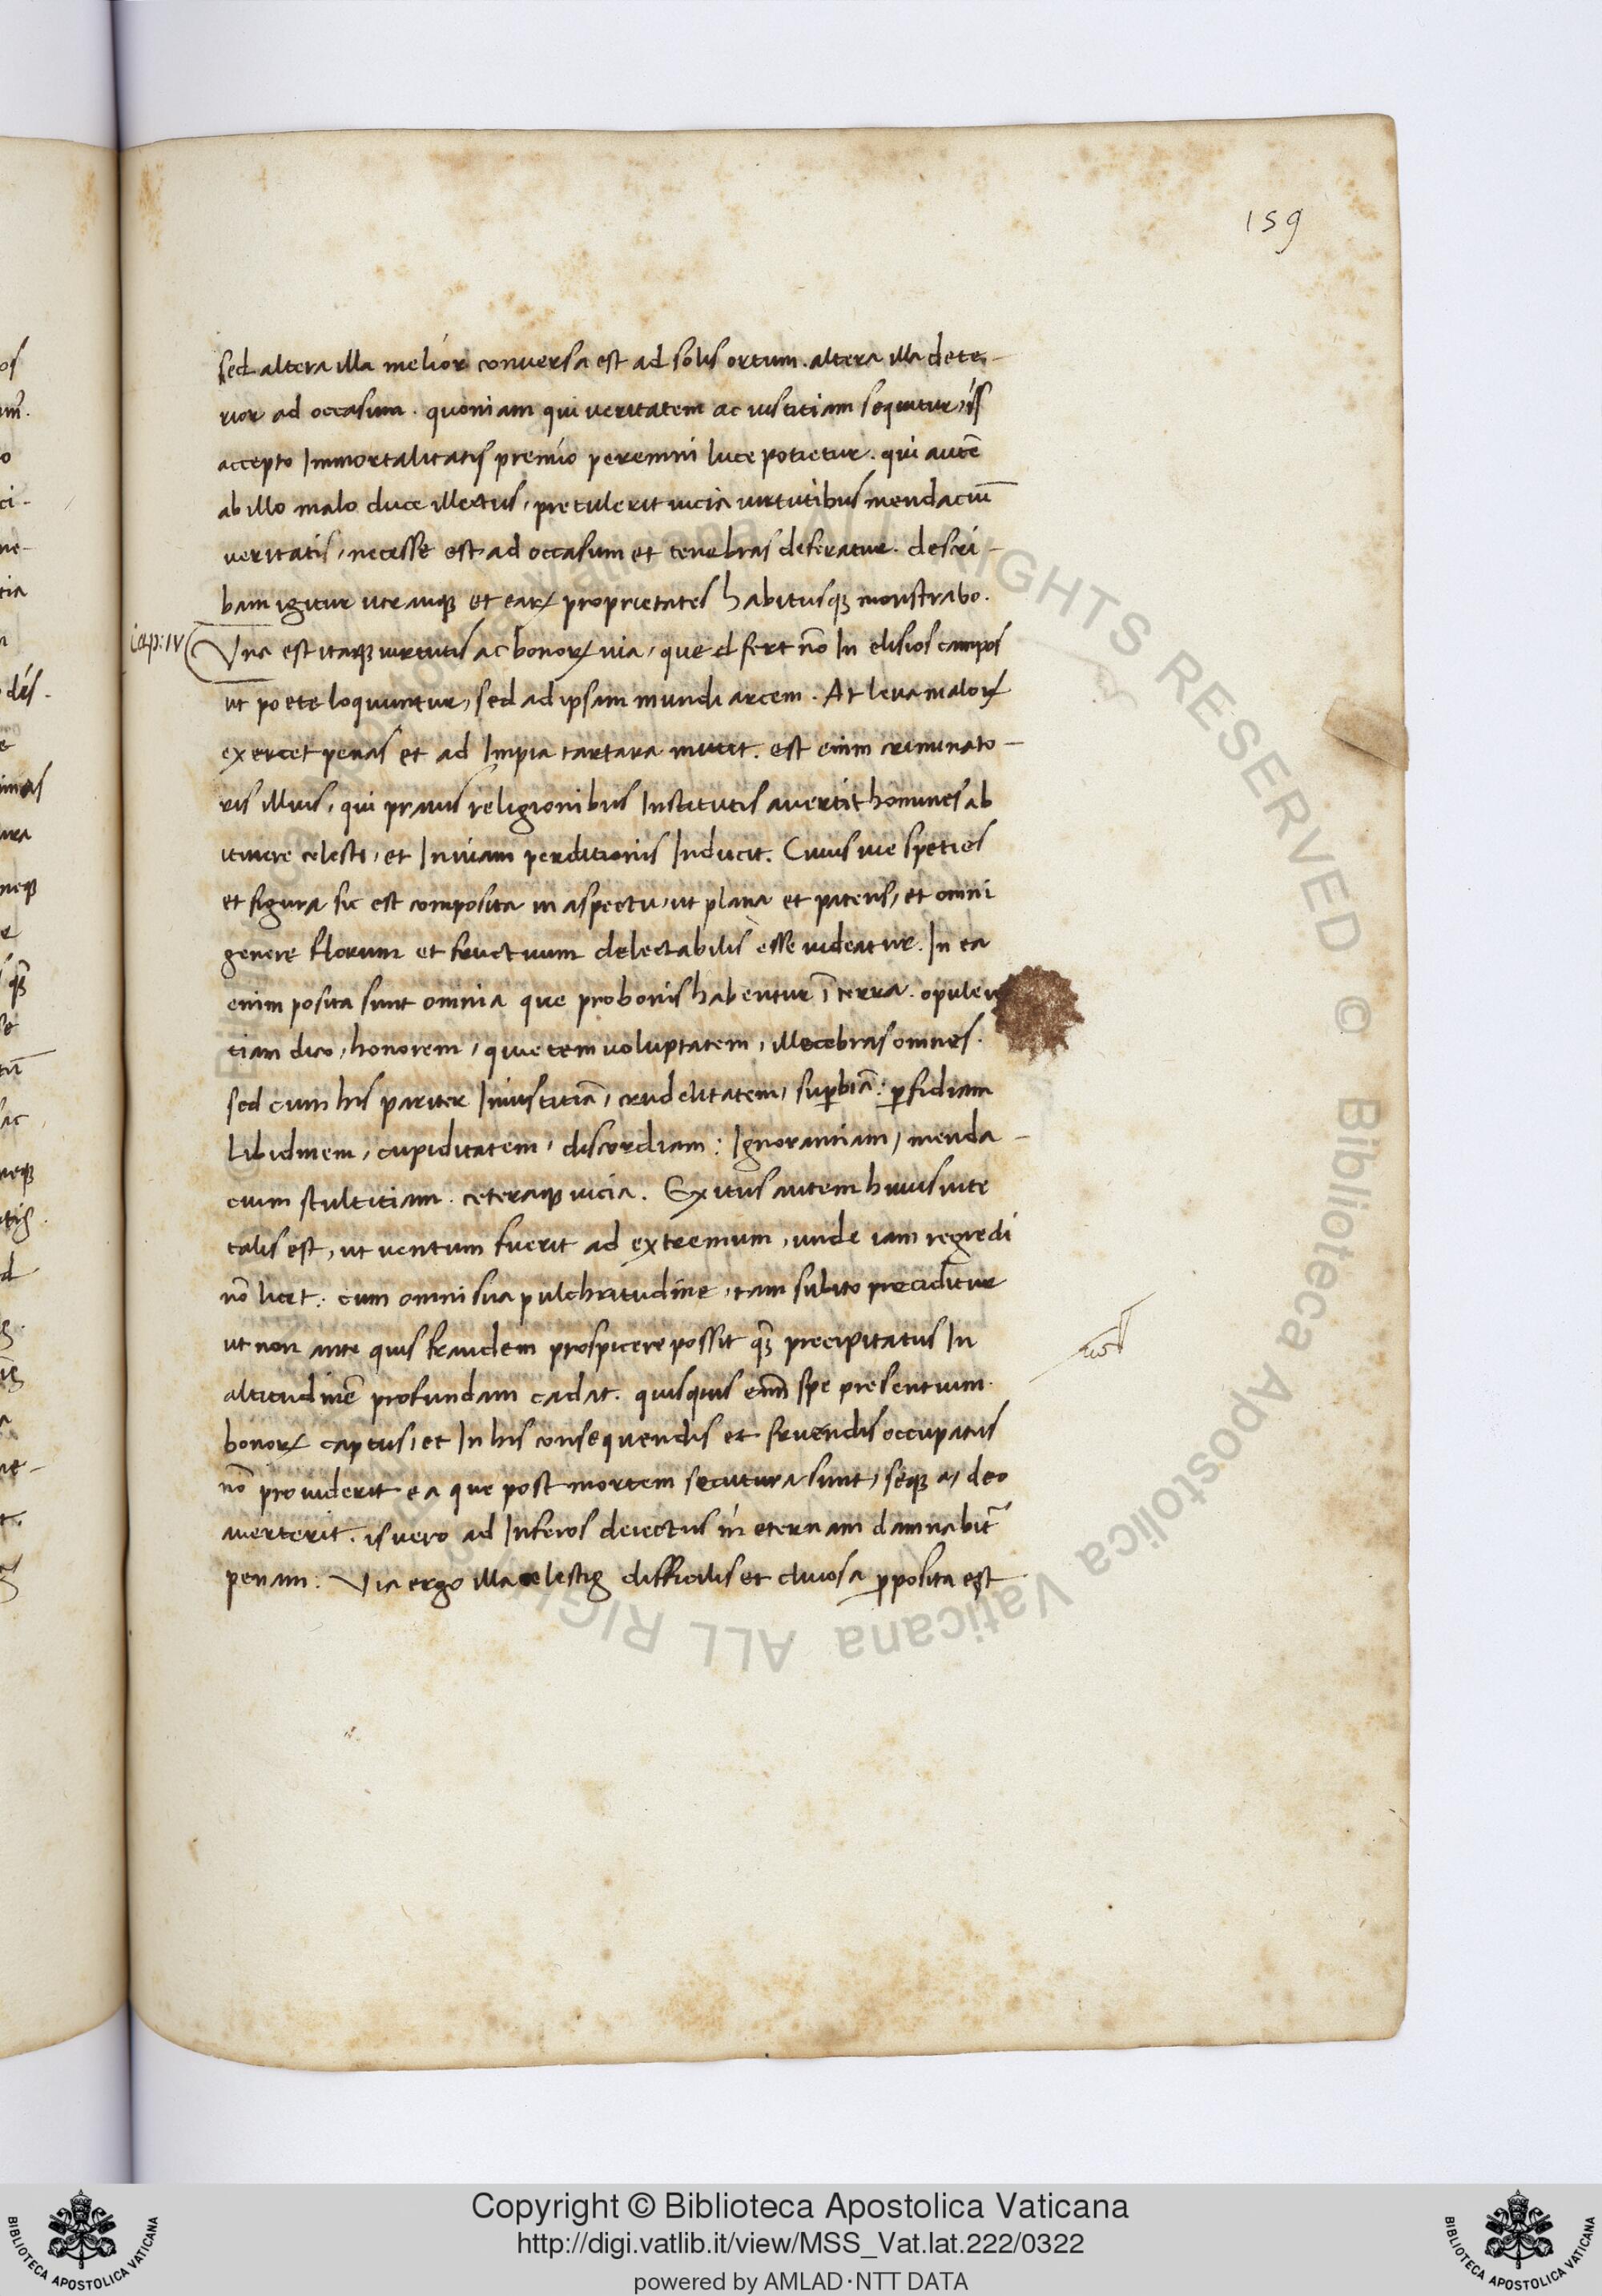 159
sed altera illa melior conversa est ad solis ortum. altera illa dete-
rior ad occasum. quoniam qui veritatem ac iustitiam sequitur, is
accepto Immortalitatis premio peremni luce potietur. qui autē
ab illo malo duce illectus, pretulerit vicia virtutibus mendaciū
veritatis, necesse est ad occasum et tenebras deferatur. descri-
bam igitur utranqꝫ et eaꝝ proprietates habitusqꝫ monstrabo.
Cap: IV
Una est itaqꝫ virtutis ac bonoꝝ via, que d fert nō In elisios campos
ut poete loquuntur, sed ad ipsam mundi arcem. At leva maloꝝ
exercet penas et ad Impia tartara mittit. est enim criminato-
ris illius, qui pravis religionibus Institutis avertit homines ab
itinere celesti, et In viam perditionis Inducit. Cuius vie speties
et figura sic est composita in aspectu, ut plana et patens, et omni
genere florum et fructuum delectabilis esse videatur. In ea
enim posita sunt omnia que pro bonis habentur ī terra. opulen
tiam dico, honorem, quietem voluptatem, illecebras omnes.
sed cum his pariter Iniustitiā, crudelitatem, suꝑbiā: ꝑfidiam
Libidinem, cupiditatem, discordiam: Ignorantiam, menda-
cium stultitiam. ceteraqꝫ vicia. Exitus autem huius vite
talis est, ut ventum fuerit ad extremum, unde iam regredi
nō licet: cum omni sua pulchritudine, tam subito preciditur
ut non ante quis fraudem prospicere possit qꝫ̄ precipitatus In
altitudinē profundam cadat. quisquis enim spe presentium
bonoꝝ captus, et In his consequendis et fruendis occupatus
nō providerit ea que post mortem secutura sunt, seqꝫ a, deo
averterit. is vero ad Inferos deiectus in eternam damnabit᷑
penam: Via ergo illa celestis difficilis et clivosa ꝓposita est
Copyright © Biblioteca Apostolica Vaticana
http://digi.vatlib.it/view/MSS_Vat.lat.222/0322
powered by AMLAD·NTT DATA
BIBLIOTECA APOSTOLICA VATICANA
BIBLIOTECA APOSTOLICA VATICANA